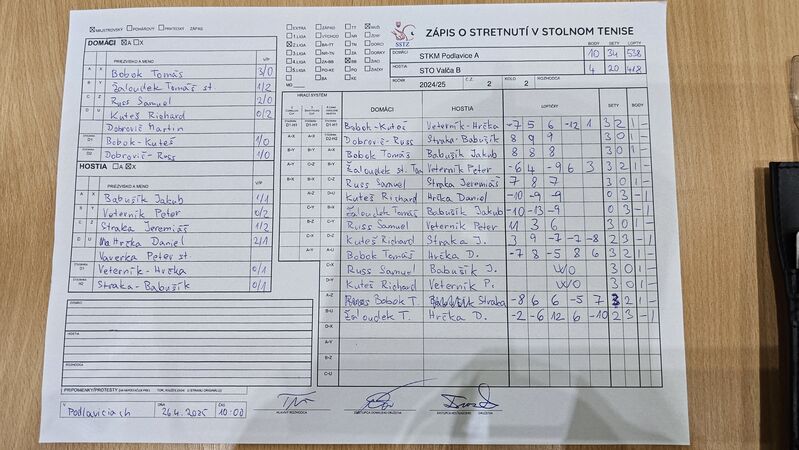 MAJSTROVSKÝ POHÁROVÝ PRIATEĽSKÝ ZÁPAS
DOMÁCI A X
PRIEZVISKO A MENO V/P
A X Bobok Tomáš 3/0
B Y Žaloudek Tomáš st 1/2
C Z Russ Samuel 2/0
D U Kuteš Richard 0/2
Dobrovič Martin
D1 Bobok - Kuteš 1/0
D2 Dobrovič - Russ 1/0
HOSTIA A X
PRIEZVISKO A MENO V/P
A X Babušík Jakub 1/1
B Y Veterník Peter 0/2
C Z Straka Jeremiáš 1/2
D U Hrčka Daniel 2/1
Vaverka Peter st
D1 Veterník - Hrčka 0/1
H2 Straka - Babušík 0/1
DOMÁCI
HOSTIA
ROZHODCA
PRIPOMIENKY/PROTESTY
V Podlaviciach DŇA 26.4.2025 ČAS 10:00
HLAVNÝ ROZHODCA
EXTRA ZÁPAD TT MUŽI
1.LIGA VÝCHOD NR ŽENY
2.LIGA BA-TT TN DORCI
3.LIGA NR-TN ZA DORKY
4.LIGA ZA-BB BB ŽIACI
5.LIGA PO-KE PO ŽIAČKY
BA KE
MO
SSTZ
ZÁPIS O STRETNUTÍ V STOLNOM TENISE
BODY SETY LOPTY
DOMÁCI STKM Podlavice A 10 34 538
HOSTIA STO Valča B 4 20 418
ROČNÍK 2024/25 Č.Z. 2 KOLO 2 ROZHODCA
HRACÍ SYSTÉM DOMÁCI HOSTIA LOPTIČKY SETY BODY
Bobok - Kuteš Veterník - Hrčka -7 5 6 -12 1 3 2 1 -
Dobrovič - Russ Straka - Babušík 8 9 9 3 0 1 -
Bobok Tomáš Babušík Jakub 8 8 8 3 0 1 -
Žaloudek st. Tom Veterník Peter -6 4 -9 6 3 3 2 1 -
Russ Samuel Straka Jeremiáš 7 8 7 3 0 1 -
Kuteš Richard Hrčka Daniel -10 -9 -9 0 3 - 1
Žaloudek Tomáš Babušík Jakub -10 -13 -9 0 3 - 1
Russ Samuel Veterník Peter 11 3 6 3 0 1 -
Kuteš Richard Straka J. 3 9 -7 -7 -8 2 3 - 1
Bobok Tomáš Hrčka D. -7 8 -5 8 6 3 2 1 -
C-X Russ Samuel Babušík J. W/O 3 0 1 -
D-Y Kuteš Richard Veterník P. W/O 3 0 1 -
A-Z Bobok T. Straka -8 6 6 -5 7 3 2 1 -
B-U Žaloudek T. Hrčka D. -2 -6 12 6 -10 2 3 - 1
D-X
A-Y
B-Z
C-U